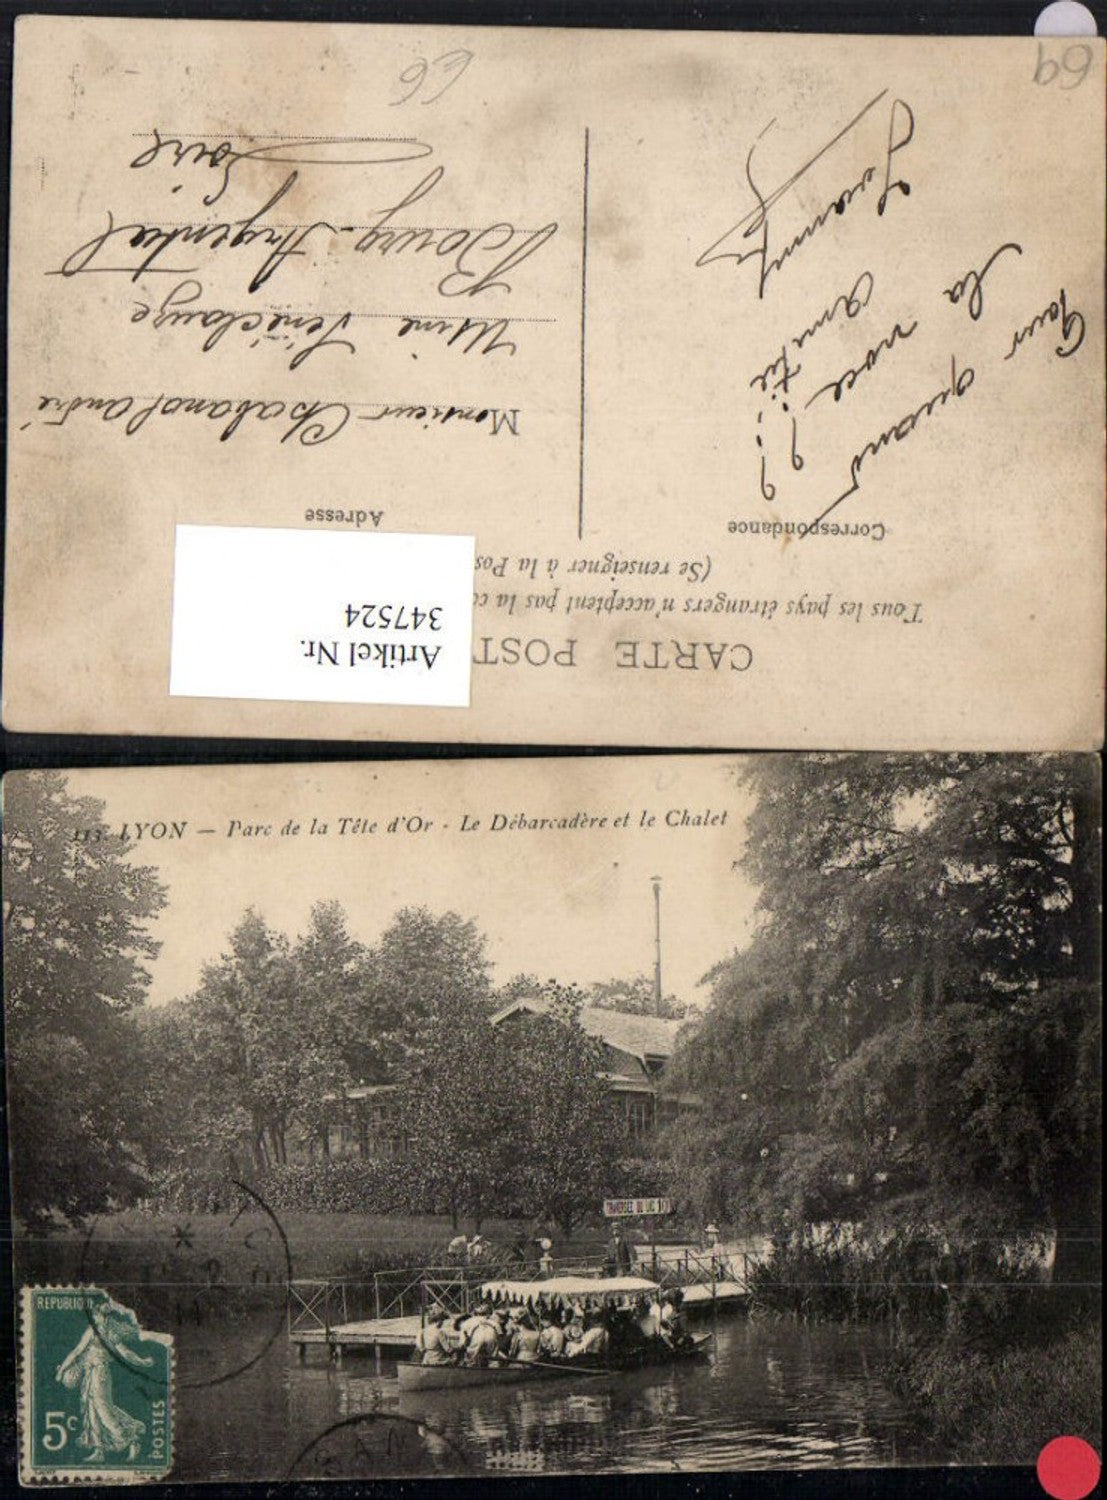 CARTE POST
Tous les pays étrangers n'acceptent pas la co
(Se renseigner à la Pos
Correspondance
Pour quand
la noce ??
Amitié ??
Adresse
Monsieur Chabanol andré
Usine Sénéclauze
Bourg-Argental
Loire
66
69
Artikel Nr.
347524
113. LYON — Parc de la Tête d'Or - Le Débarcadère et le Chalet
TRAVERSEE DU LAC
REPUBLIQUE
5c
POSTES